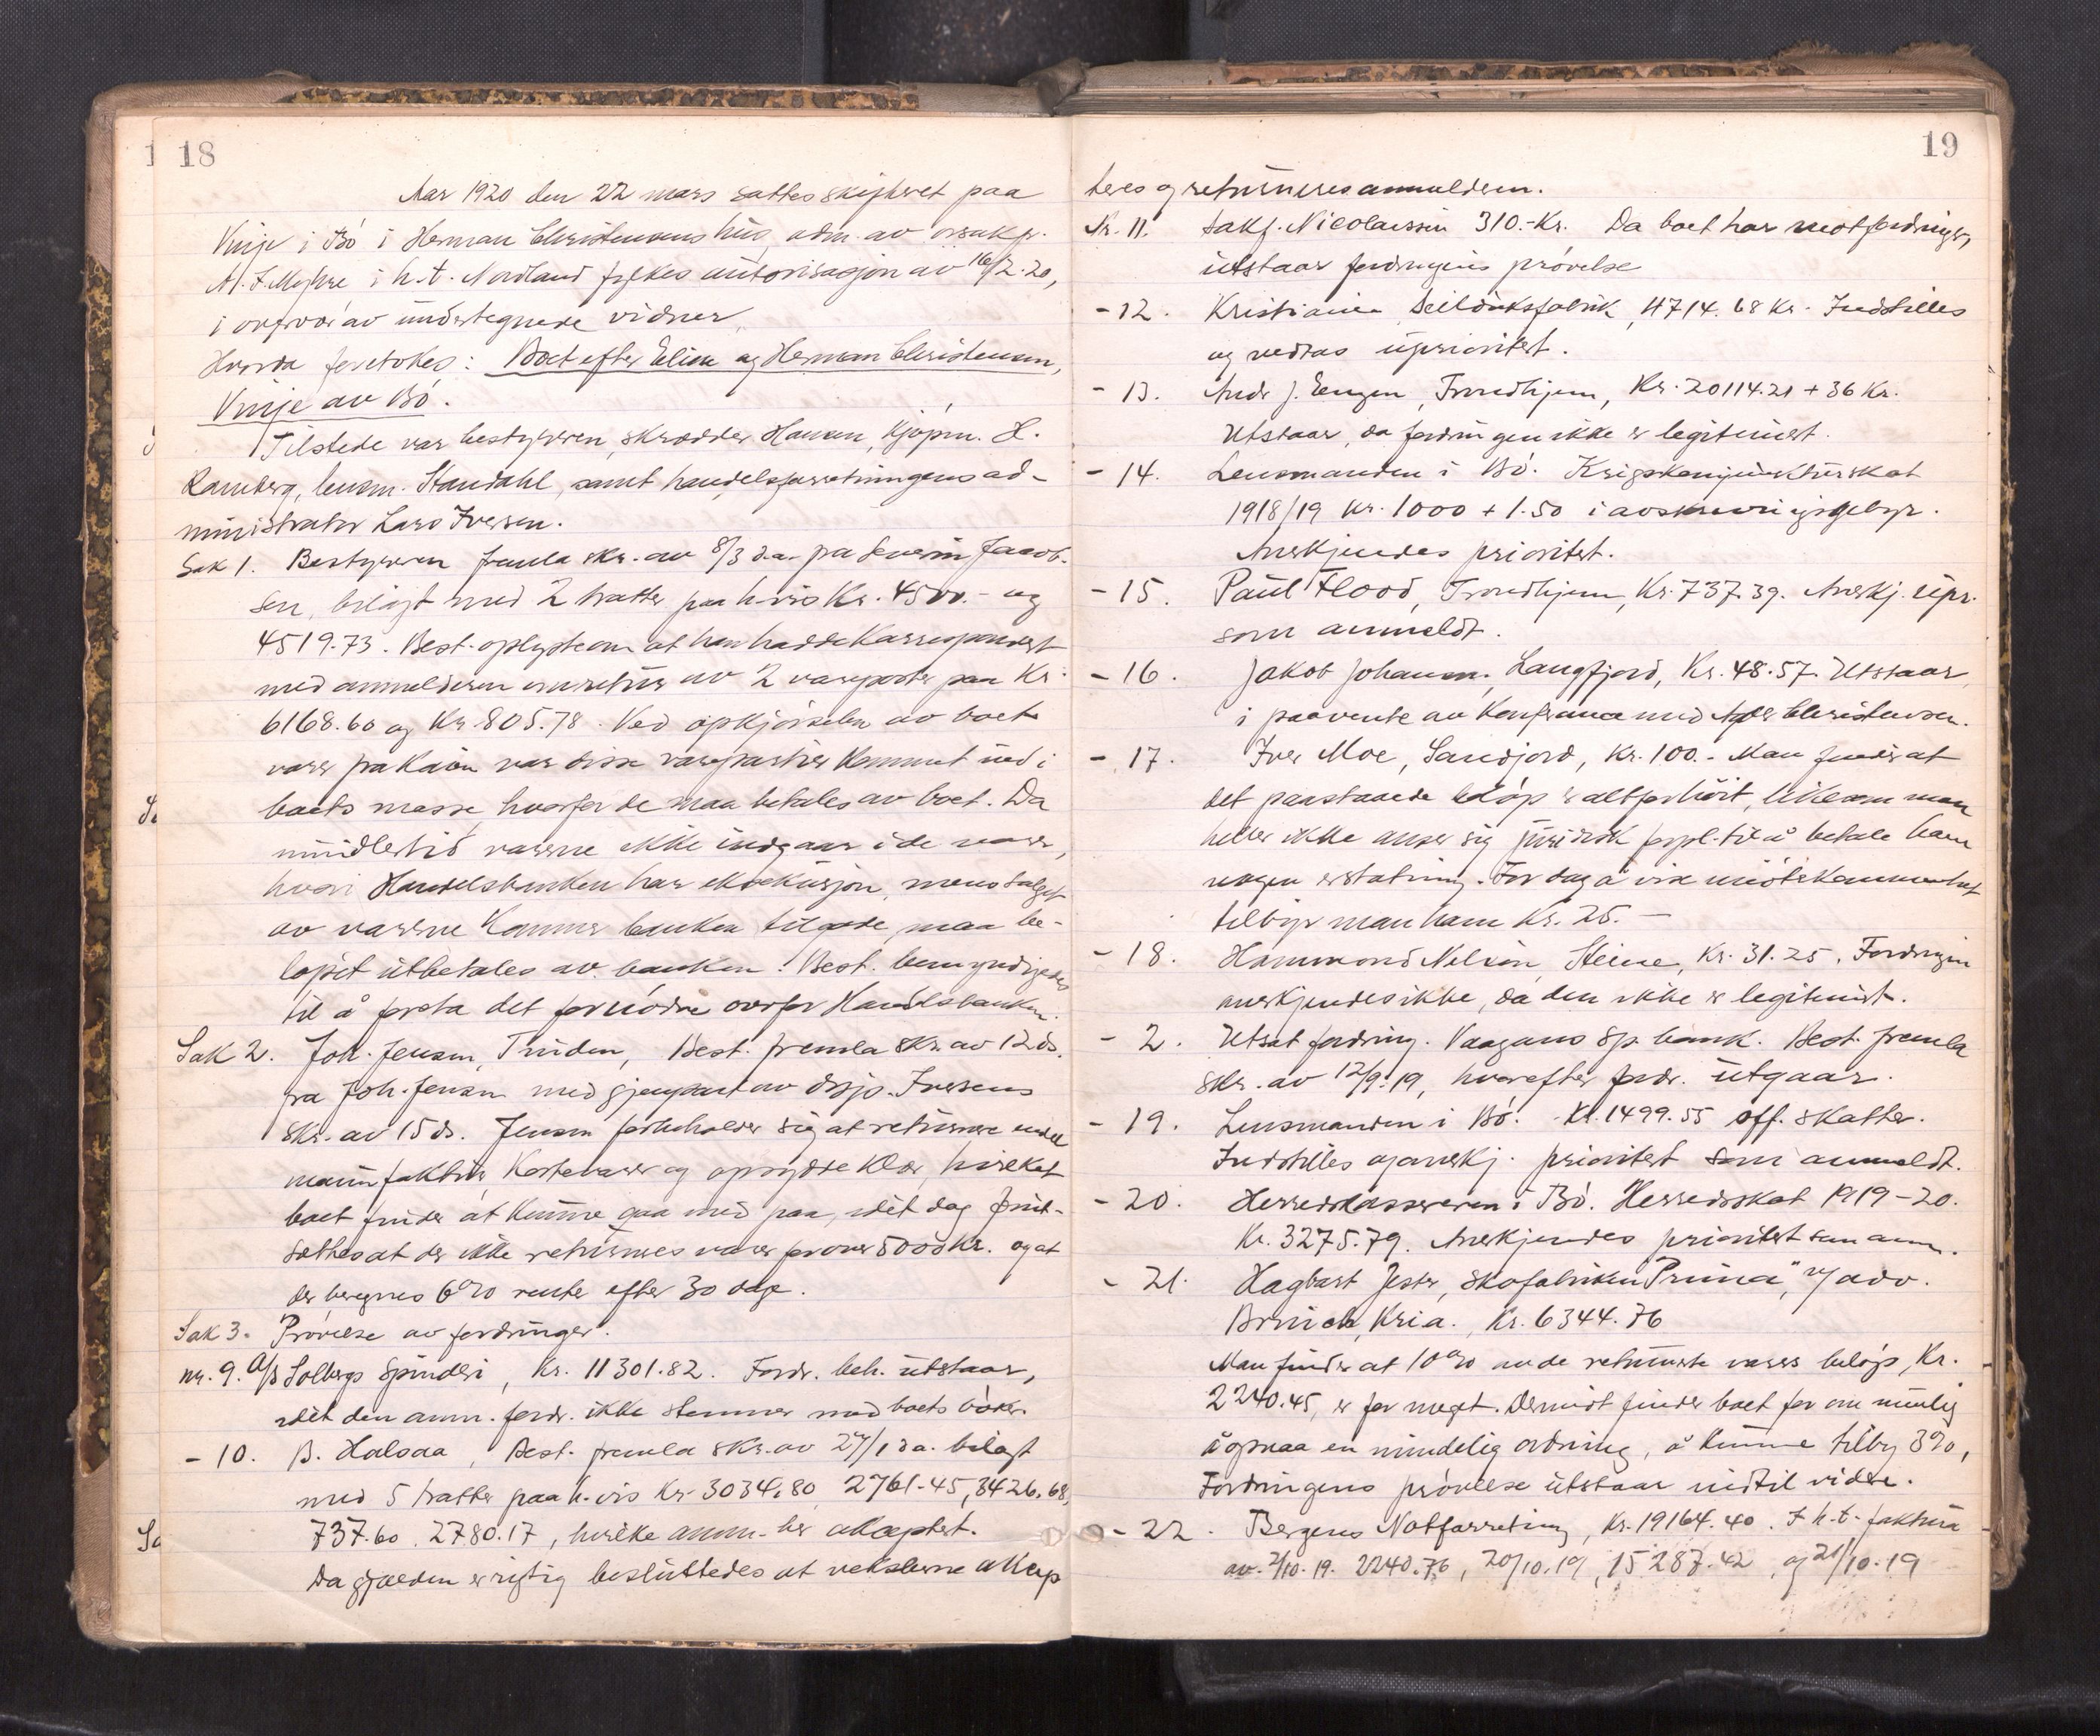 18
Aar 1920 den 22 mars sattes skifteret paa
Vinje i Bö i Herman Christensens hus, adm. av
i h.t. Nordland fylkes autorisasjon av 16/2.20,
i overvær av undertegnede vidner.
Hvorda foretokes: Boet efter Elise og Herman Christensen,
Vinje av Bö.
Tilstede var bestyreren, skrædder Hansen, kjöpm. H.
Ramberg, lensm. Standahl, samt handelsforretningens ad-
ministrator Lars Iversen.
Sak 1. Bestyreren fremla skr. av 8/3 d.a. fra Severin Jacob-
sen, bilagt med 2 tratter paa h-vis Kr. 4500.- og
4519.73. Best. oplyste om at han hadde korrespondert
med anmelderen om retur av 2 vareposter paa Kr.
6168.60 og Kr. 805.78. Ved opkjörselen av boets
varer fra kaien var disse varepartier kommet ind i
boets masse hvorfor de maa betales av boet. Da
imidlertid varerne ikke indgaar i de varer,
hvori Handelsbanken har eksekusjon, mens salget
av varerne kommer banken tilgode, maa be-
löpet utbetales av banken. Best. bemyndigedes
til å foreta det fornödne overfor Handelsbanken.
Sak 2. Joh. Jensen, Tinden, Best. fremla skr. av 12 ds.
fra Joh. Jensen med gjenpart av dsjo. Iversens
skr. av 15 ds. Jensen forbeholder sig at returnere endel
manufaktur, kortevarer og opsydde klær, hvilket
boet finder at kunne gaa med paa, idet dog forut-
sættes at der ikke returneres varer for over 5000 kr. og at
der beregnes 6% rente efter 30 dage.
Sak 3. Prövelse av fordringer.
nr. 9. A/S Solbergs Spinderi, Kr. 11301.82. Fordr. beh. utstaar,
idet den anm. fordr. ikke stemmer med boets böker.
- 10. B. Halsaa, Best. fremla skr. av 27/1 d.a. bilagt
med 5 tratter paa h-vis Kr. 3034.80, 2761.45, 3426.68,
737.60, 2780.17, hvilke anm. ber akseptert.
Da gjælden er rigtig besluttedes at vekslerne aksep
19
teres og returneres anmelderen.
Nr. 11. Sakf. Nicolaissen 310.- Kr. Da boet har motfordringer,
utstaar fordringens prövelse
- 12. Kristiania Seildugsfabrik, 4714.68 Kr. Indstilles
og vedtas uprioritert.
- 13. Andr J. Engen, Trondhjem, Kr. 20114.21 + 36 Kr.
Utstaar, da fordringen ikke er legitimert.
- 14. Lensmanden i Bö. Krigskonjunkturskat
1918/19 kr. 1000 + 1.50 i avskrivningsgebyr.
Anerkjendes prioritert.
- 15. Paul Flood, Trondhjem, Kr. 737.39. Anerkj. upr.
som anmeldt.
- 16. Jakob Johansen, Langfjord, Kr. 48.57. Utstaar
i paavente av konferance med Christensen.
- 17. Iver Moe, Sandjord, Kr. 100.- Man finder at
det paastaaede belöp er altfor höit, likesom man
heller ikke anser sig juridisk forpl. til å betale ham
nogen erstatning. For dog å vise imötekommenhet
tilbyr man ham Kr. 25.-
- 18. Hammond Nelson, Steine, Kr. 31.25. Fordringen
anerkjendes ikke, da den ikke er legitimert.
- 2. Utsat fordring. Vaagans Sp. bank. Best. fremla
skr. av 12/9.19, hvorefter fordr. utgaar.
- 19. Lensmanden i Bö. Kr. 1499.55 off. skatter.
Indstilles og anerkj. prioritert som anmeldt.
- 20. Herredskassereren i Bö. Herredsskat 1919-20.
Kr. 3275.79. Anerkjendes prioritert som anm.
- 21. Hagbart Jester, skofabrikken "Prima", v/ adv.
Brüich, Kria., Kr. 6344.76
Man finder at 10% av de returnerte varers belöp, Kr.
2240.45, er for meget. Derimot finder boet for om mulig
å opnaa en mindelig ordning, å kunne tilby 3%,
Fordringens prövelse utstaar indtil videre.
- 22. Bergens Notforretning, Kr. 19164.40. I h.t. faktura
av 2/10.19. 2240.76, 20/10.19, 15287.42, og 21/10.19